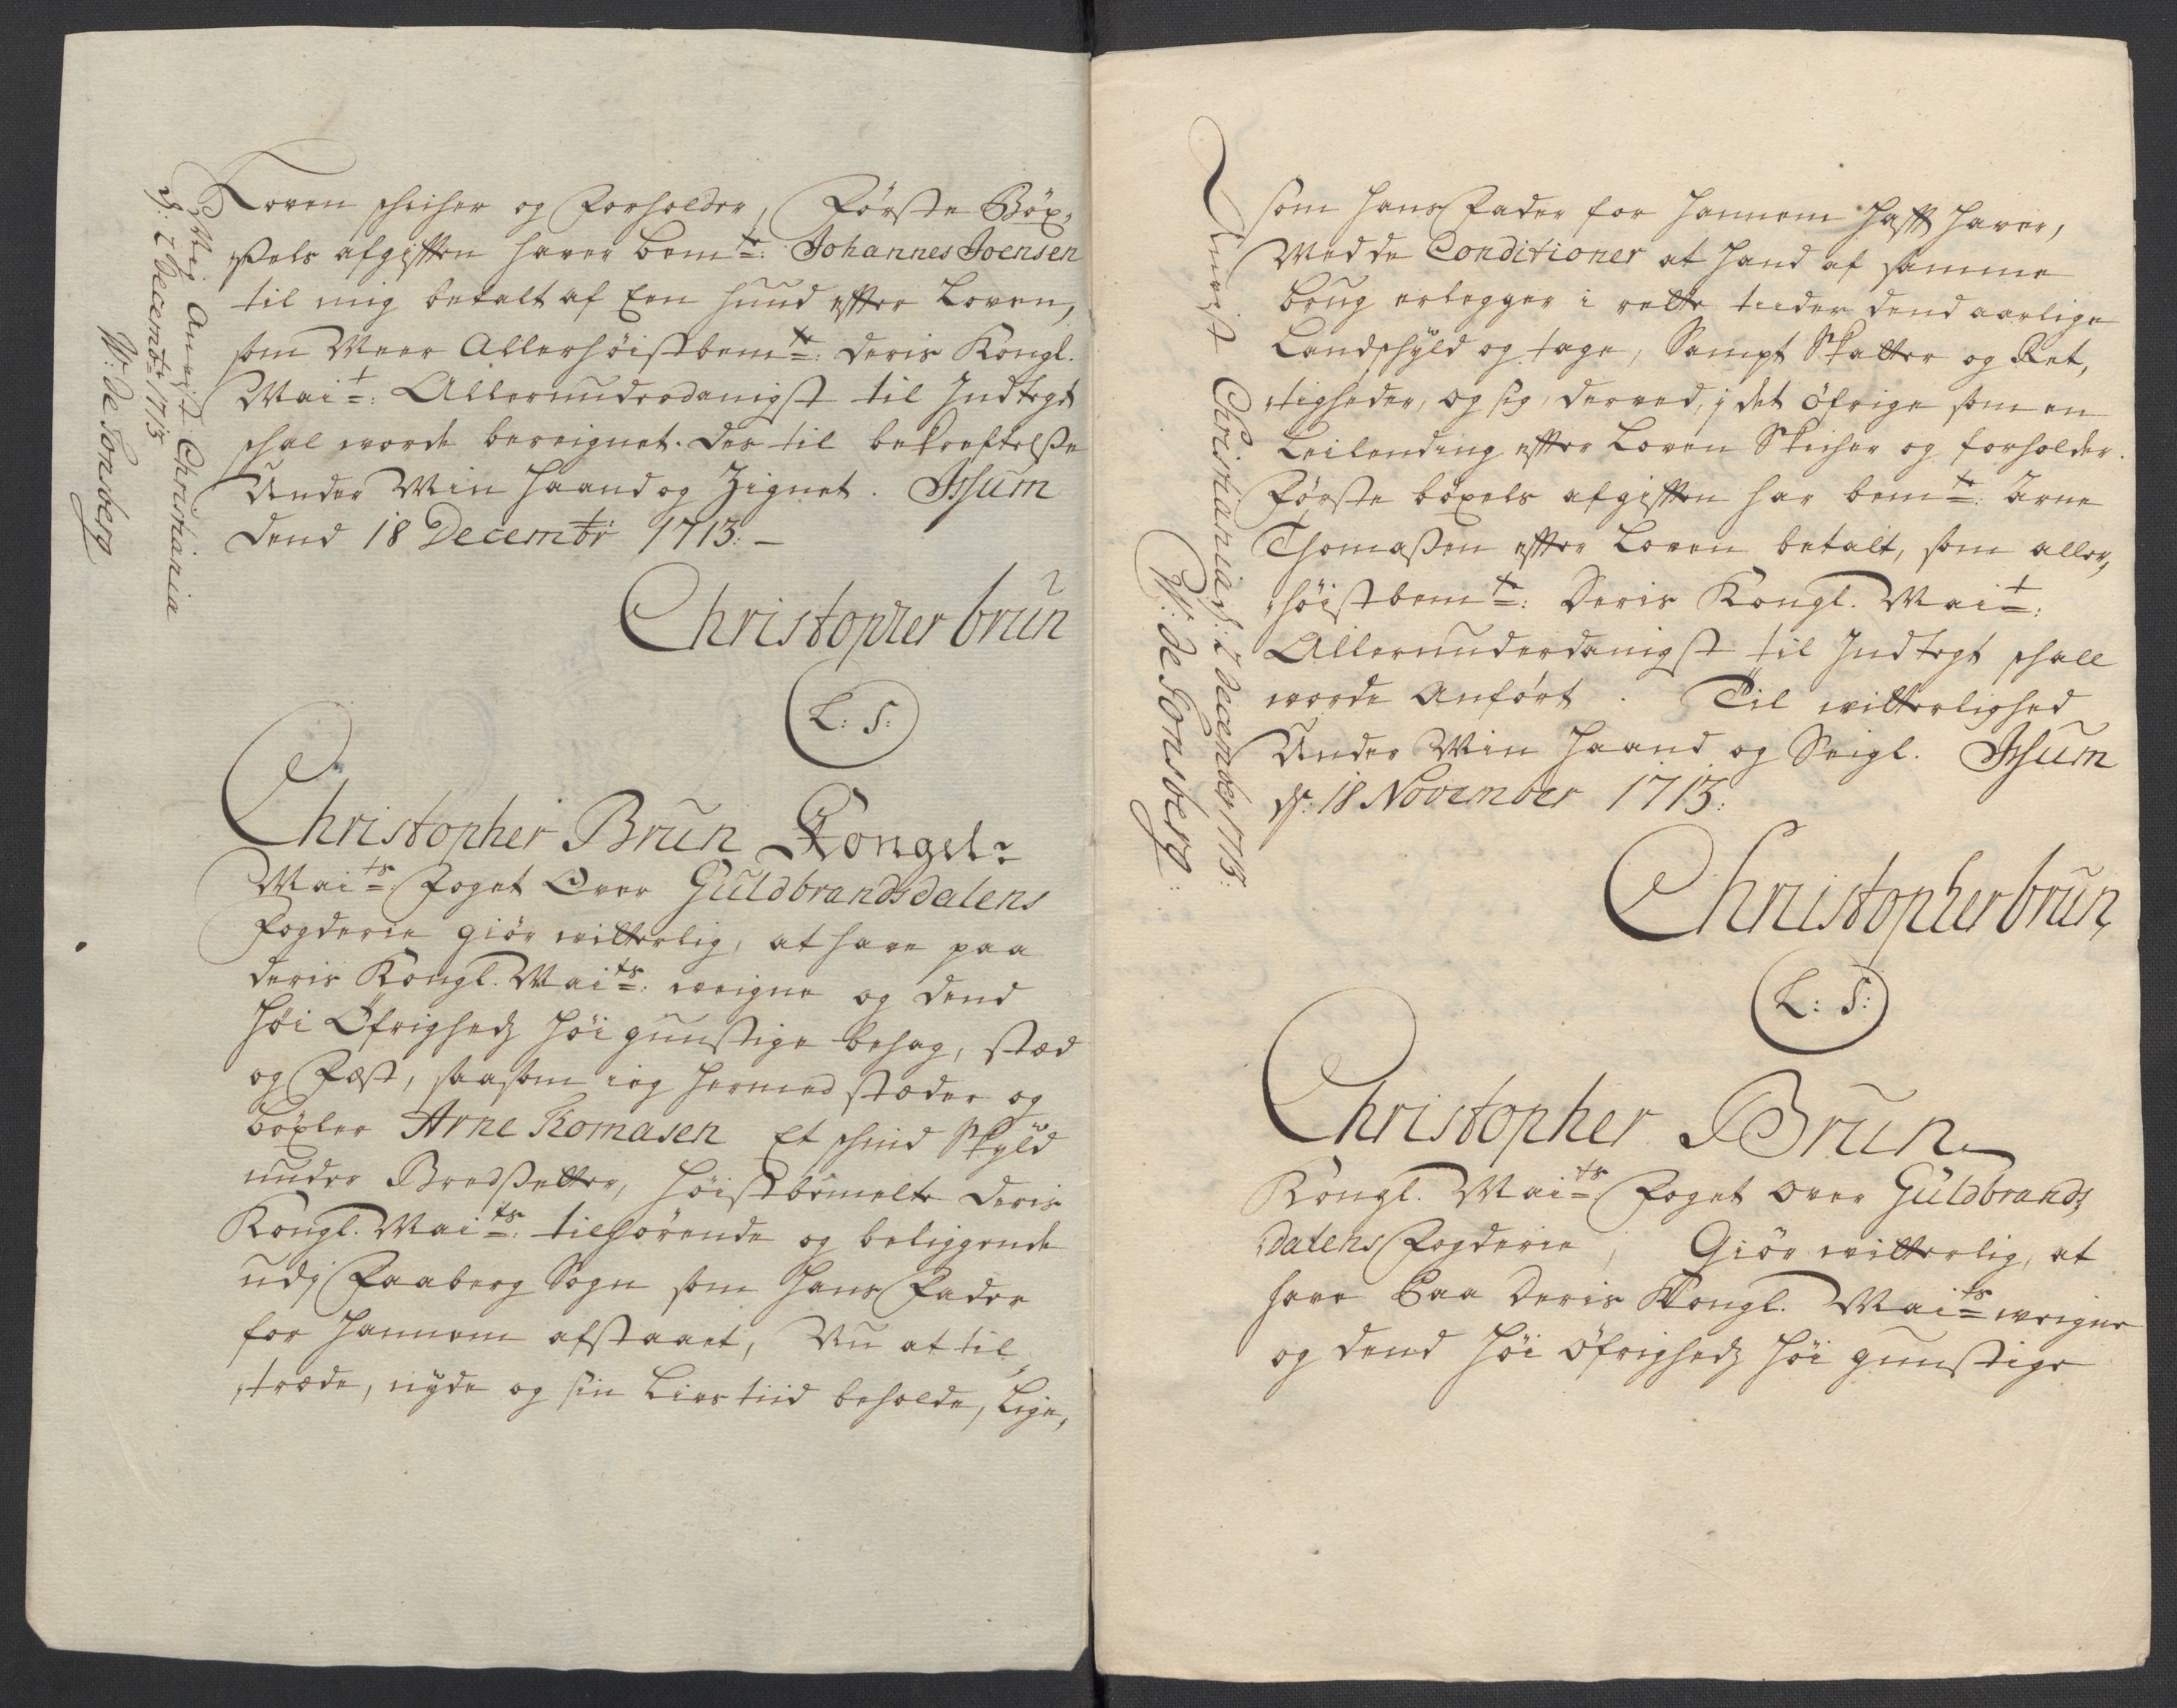 Loven schicher og forholder, Første Böx,
ßels afgifften hafver bemte: Johannes Joensen
til mig betalt af Een hund effter Loven,
som Meer Allerhöistbemte: deris Kongl.
Mait: Allerunderdanigst til Indtegt
schal worde bereignet. Des til bekreftelße
Under Min Haand og Zignet. Jsum
dend 18 Decembr 1713: –
Christopher brün
L: S:
Anvist Christiania
d: 2 decembr 1713
W: de Tonsberg
Christopher Brün Kongel:
Maits: Foget Over Güldbrandsdalens
fogderie giör witterlig, at have paa
deris Kongl. Maits: weigne og dend
höi Öfrigheds höi gunstige behag, sted
og Fæst, saasom ieg hermed stæder og
böxler Arne Tomasen Et schind Skyld
under Bredsetter, höistbemelte deris
Kongl. Maits: tilhörende og beliggende
udj Faaberg Sogn som Hans Fader
for hannem afstaaet, Nu at til
,træde, nyde og sin Lifs tiid beholde, Lige,
som hans Fader for hannem hafft haver,
Med de Conditioner at hand af samme
brug erlegger i rette tiider dend aarlige
Landschyld og tage, Sampt Skatter og Ret,
,tigheder, og sig derved, j det öfrige som en
Leilending effter Loven Skicher og forholder.
Förste böxels afgifften har bemte: Arne
Thomaßen effter Loven betalt, som aller,
,höistbemte: Deris Kongl. Mait:
Allerunderdanigst til Indtegt schall
worde Anfört. Til witterlighed
Under Min Haand og Seigl. Jsum
d: 18 November 1713:
Christopher brün
L: S:
Anvist Christiania d: 2 december 1713:
W: de Tonsberg:
Christopher Brün
Kongl. Maits: Foget over Güldbrands,
,dalens Fogderie, Giör witterlig, at
have Paa Deris Kongl. Maits weigne
og dend höi öfrigheds höi gunstige